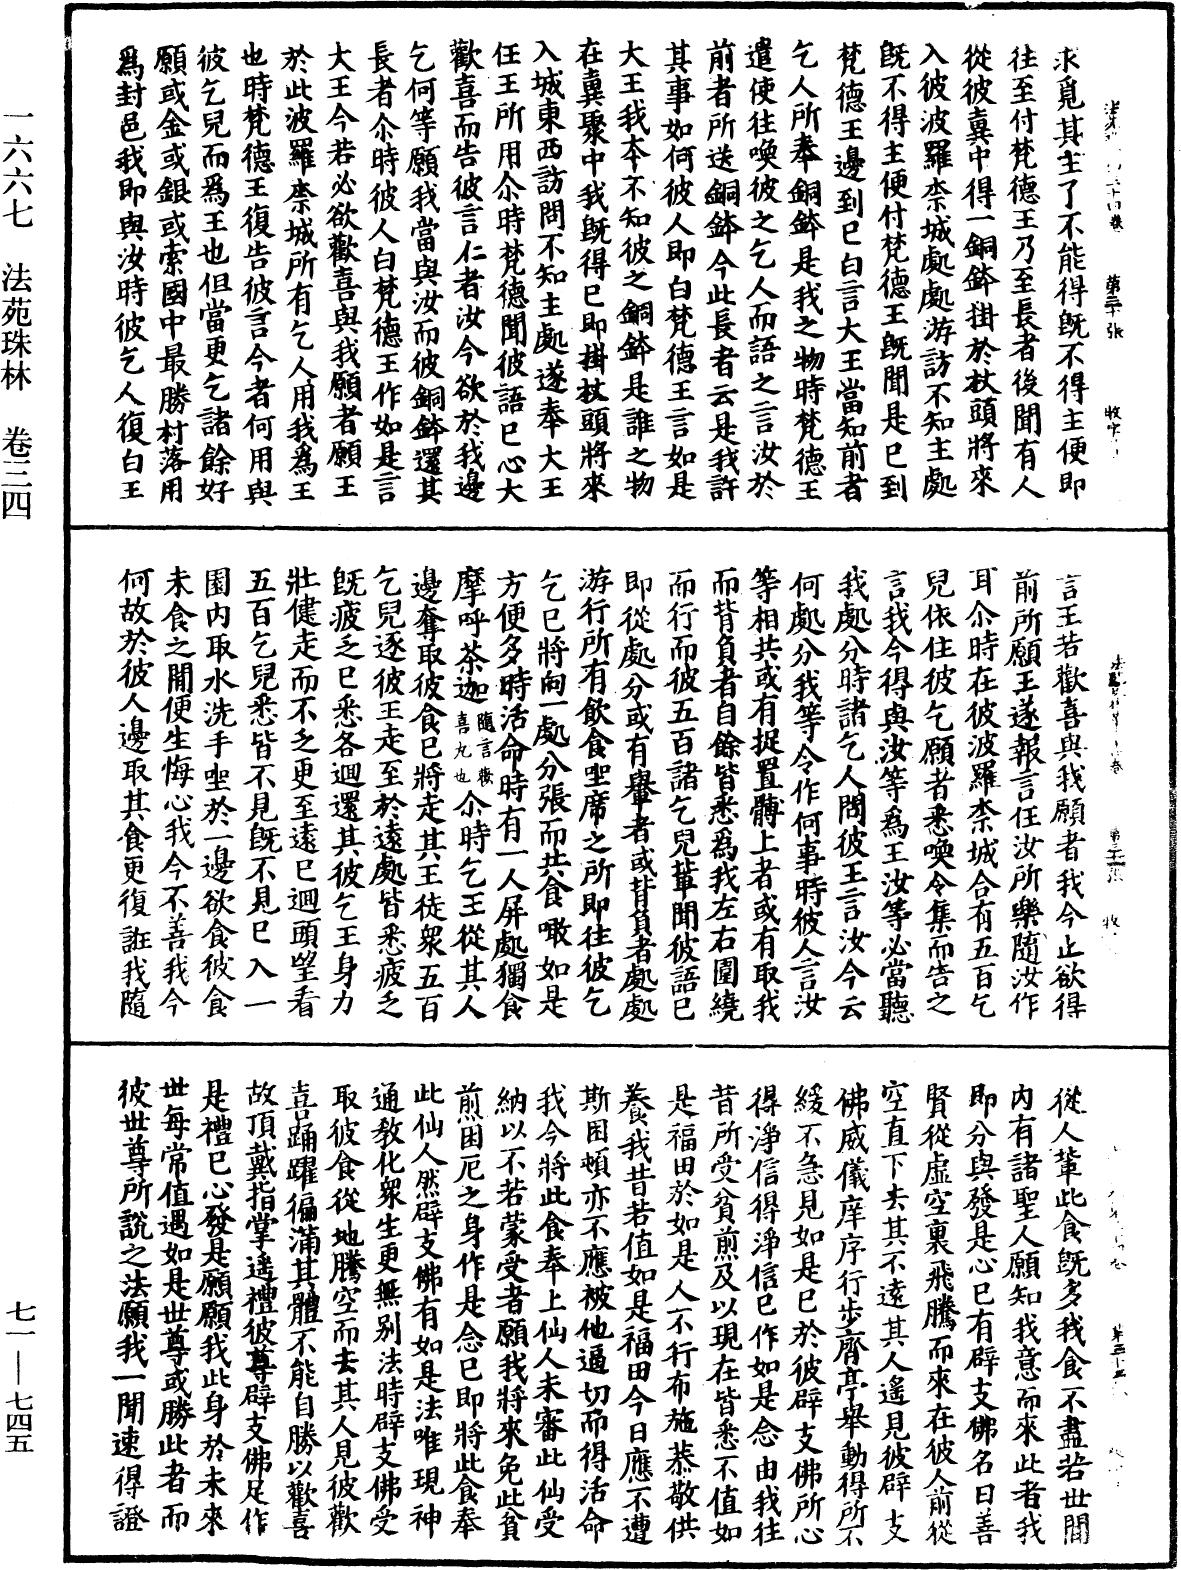 一六六七　法苑珠林　卷三四
求覓其主了不能得既不得主便即
往至付梵德王乃至長者後聞有人
從彼糞中得一銅鉢掛於杖頭將來
入彼波羅柰城處處游訪不知主處
既不得主便付梵德王既聞是已到
梵德王邊到已白言大王當知前者
乞人所奉銅鉢是我之物時梵德王
遣使往喚彼之乞人而語之言汝於
前者所送銅鉢今此長者云是我許
其事如何彼人即白梵德王言如是
大王我本不知彼之銅鉢是誰之物
在糞聚中我既得已即掛杖頭將來
入城東西訪問不知主處遂奉大王
任王所用尒時梵德聞彼語已心大
歡喜而告彼言仁者汝今欲於我邊
乞何等願我當與汝而彼銅鉢還其
長者尒時彼人白梵德王作如是言
大王今若必欲歡喜與我願者願王
於此波羅柰城所有乞人用我爲王
也時梵德王復告彼言今者何用與
彼乞兒而爲王也但當更乞諸餘好
願或金或銀或索國中最勝村落用
爲封邑我即與汝時彼乞人復白王
言王若歡喜與我願者我今止欲得
前所願王遂報言任汝所樂隨汝作
耳尒時在彼波羅柰城合有五百乞
兒依住彼乞願者悉喚令集而告之
言我今得與汝等爲王汝等必當聽
我處分時諸乞人問彼王言汝今云
何處分我等令作何事時彼人言汝
等相共或有捉置髆上者或有取我
而背負者自餘皆悉爲我左右圍繞
而行而彼五百諸乞兒輩聞彼語已
即從處分或有轝者或背負者處處
游行所有飲食坐席之所即往彼乞
乞已將向一處分張而共食噉如是
方便多時活命時有一人屏處獨食
摩呼荼迦隨言歡喜丸也尒時乞王從其人
邊奪取彼食已將走其王徒衆五百
乞兒逐彼王走至於遠處皆悉疲乏
既疲乏已悉各迴還其彼乞王身力
壯健走而不乏更至遠已迴頭望看
五百乞兒悉皆不見既不見已入一
園内取水洗手坐於一邊欲食彼食
未食之間便生悔心我今不善我今
何故於彼人邊取其食更復誑我隨
從人輩此食既多我食不盡若世間
内有諸聖人願知我意而來此者我
即分與發是心已有辟支佛名曰善
賢從虛空裏飛騰而來在彼人前從
空直下去其不遠其人遙見彼辟支
佛威儀庠序行步齊亭舉動得所不
緩不急見如是已於彼辟支佛所心
得淨信得淨信已作如是念由我往
昔所受貧煎及以現在皆悉不值如
是福田於如是人不行布施恭敬供
養我昔若值如是福田今日應不遭
斯困頓亦不應被他逼切而得活命
我今將此食奉上仙人未審此仙受
納以不若蒙受者願我將來免此貧
煎困厄之身作是念已即將此食奉
此仙人然辟支佛有如是法唯現神
通教化衆生更無别法時辟支佛受
取彼食從地騰空而去其人見彼歡
喜踊躍徧滿其體不能自勝以歡喜
故頂戴指掌遙禮彼尊辟支佛足作
是禮已心發是願願我此身於未來
世每常值遇如是世尊或勝此者而
彼世尊所說之法願我一聞速得證
七一—七四五